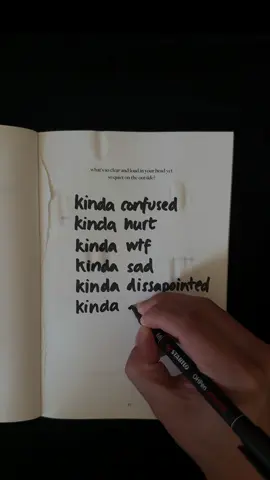 what was clear and loud in your head yet
so quiet on the outside?
kinda confused
kinda hurt
kinda wtf
kinda sad
kinda dissapointed
kinda